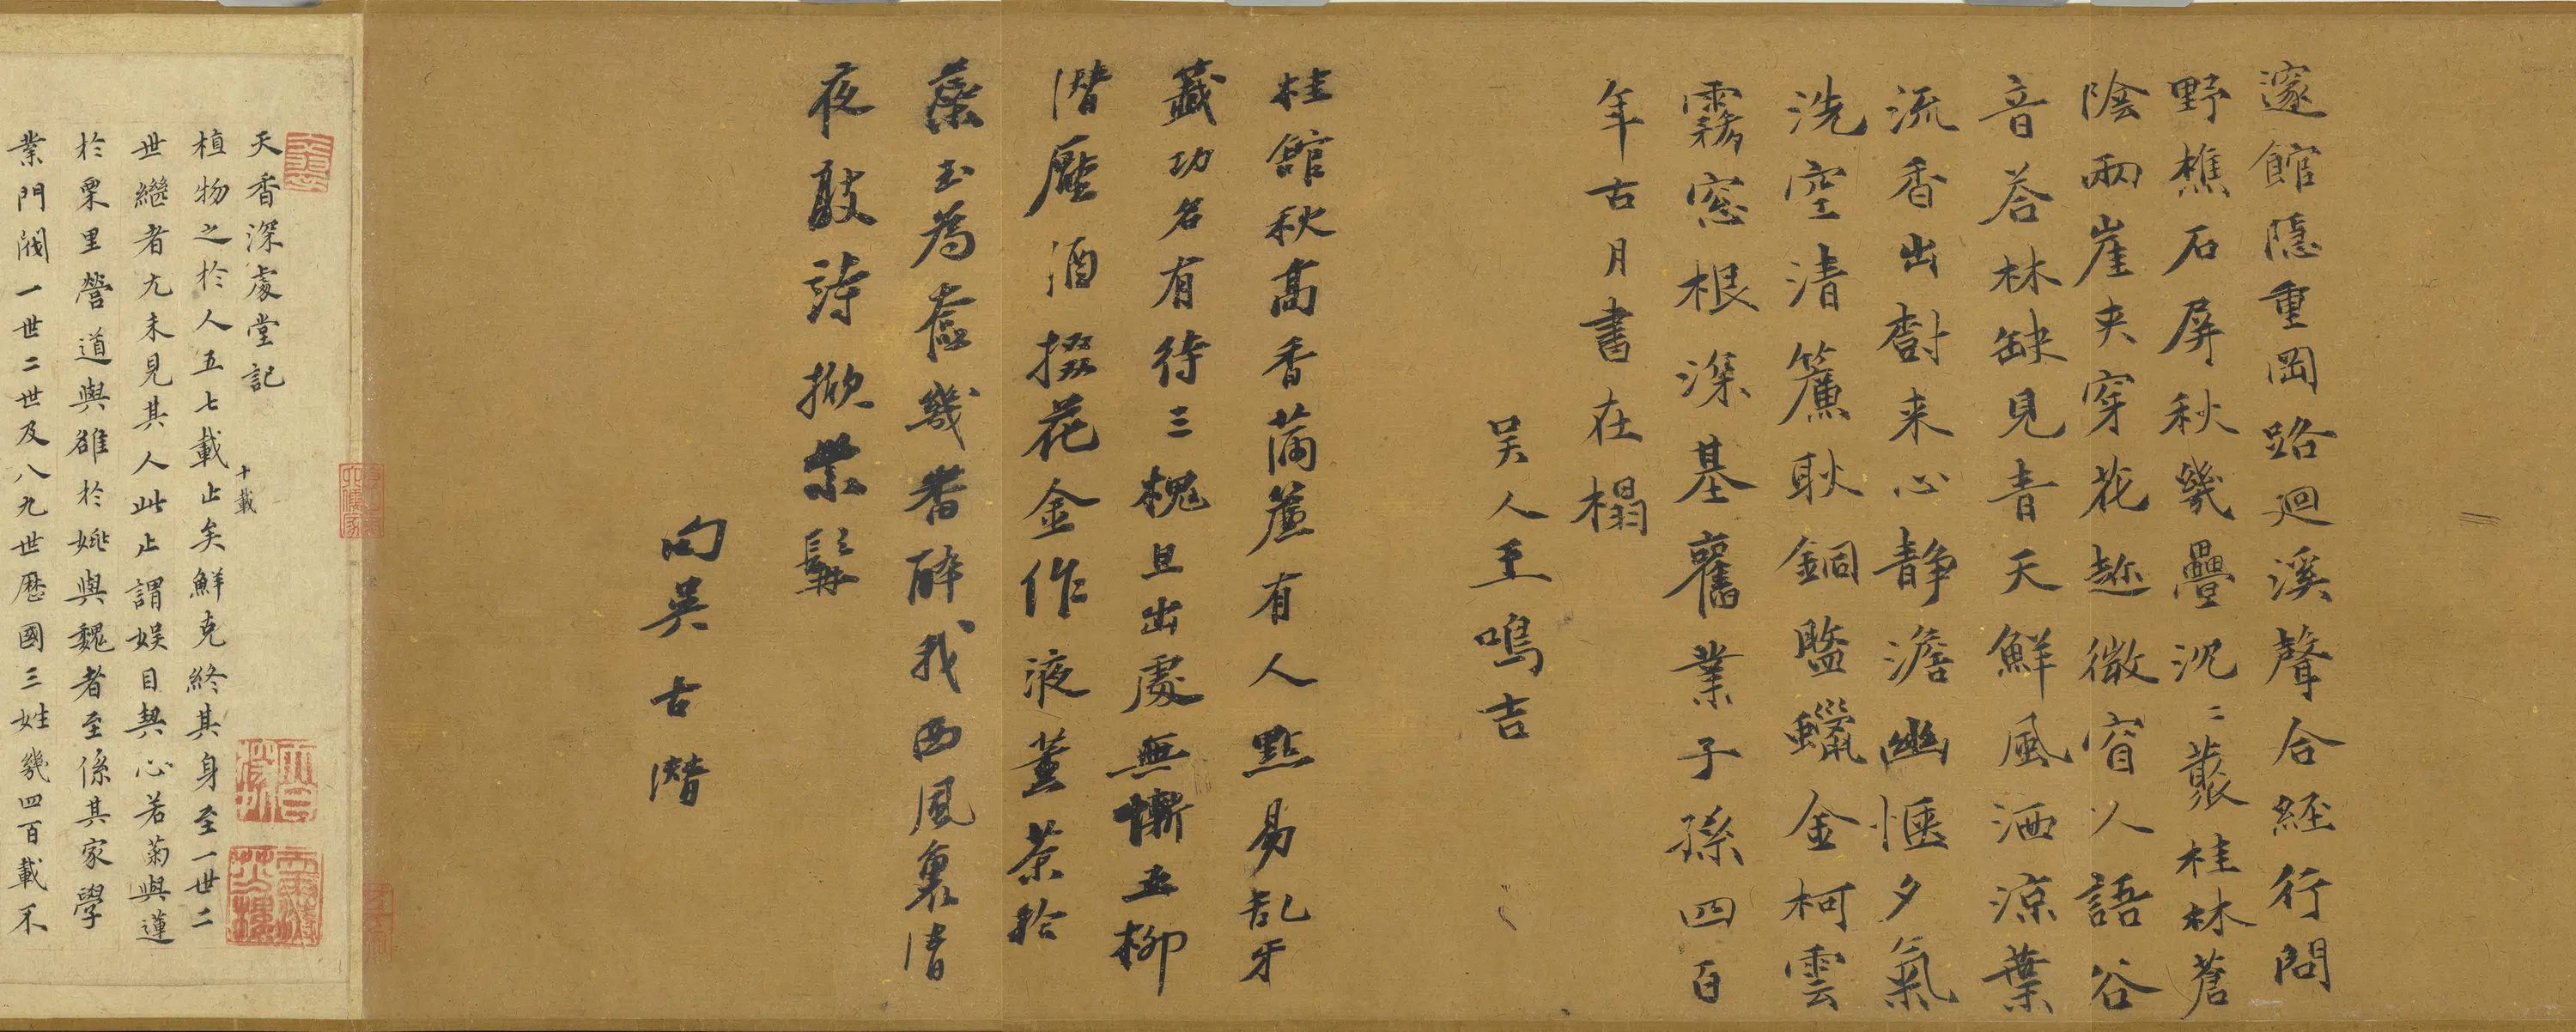 邃館隱重岡路迴溪聲合經行問
野樵石屏秋幾疊沉〻叢桂林蒼
陰兩崖夾穿花趂微窅人語谷
音荅林缺見青天鮮風洒涼葉
流香出樹来心靜澹幽愜夕氣
洗空清簾耿銅盤蠟金柯雲
霧窓根深基舊業子孫四百
年古月書在榻
吳人王鳴吉
桂館秋高香滿簷有人點易乱牙
籤功名有待三槐且出處無慚五柳
潛壓酒掇花金作液薰茶拾
蘂玉為奩幾番醉我西風裏清
夜敲詩掀紫髯
句吳古潛
天香深處堂記
植物之於人五七載止矣鮮克終其身至一世二
十載
世繼者尤未見其人此止謂娱目契心若菊與蓮
於栗里營道與雖於姚與魏者至係其家學
業門閥一世二世及八九世歷國三姓幾四百載不